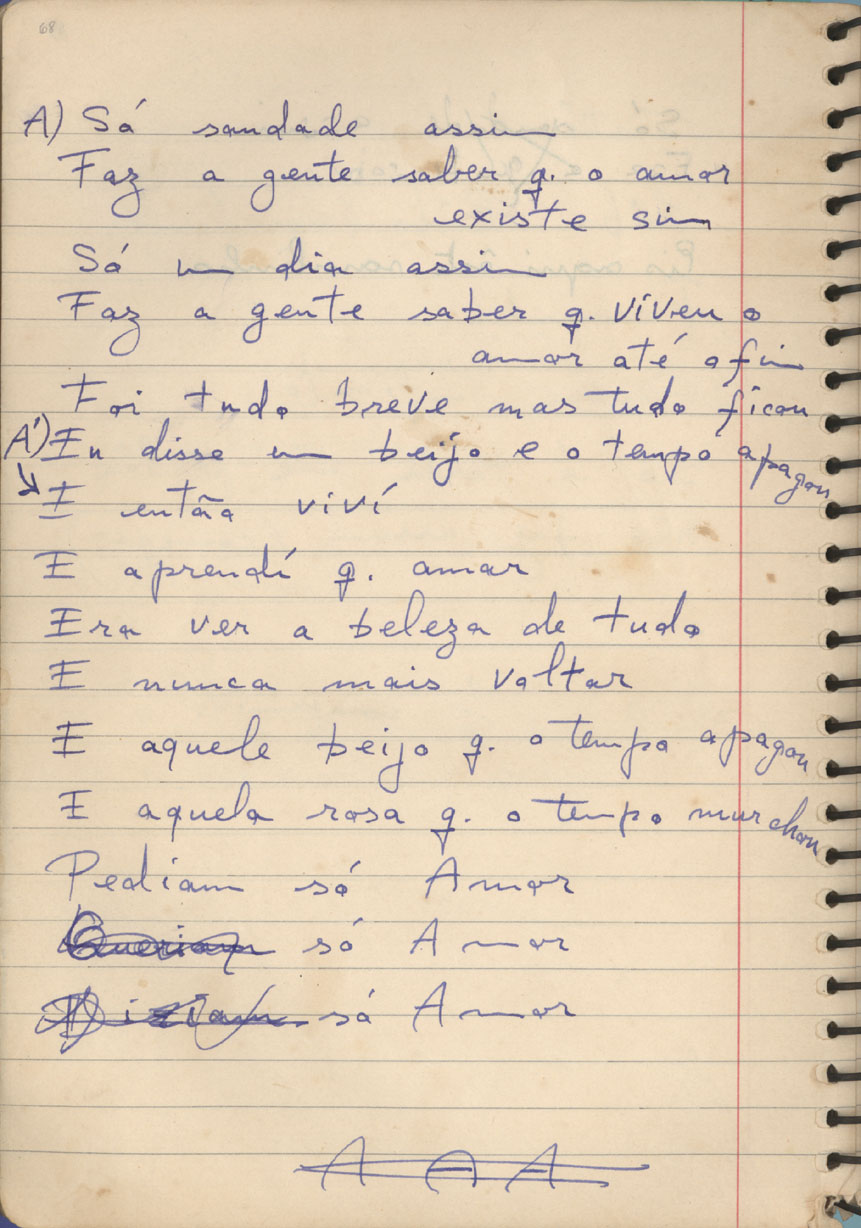 68
A) Só saudade assim
Faz a gente saber q. o amor
existe sim
Só um dia assim
Faz a gente saber q. viveu o
amor até o fim
Foi tudo breve mas tudo ficou
A') Eu disse um beijo e o tempo apagou
E então viví
E aprendí q. amar
Era ver a beleza de tudo
E nunca mais voltar
E aquele beijo q. o tempo apagou
E aquela rosa q. o tempo murchou
Pediam só Amor
Queriam só Amor
Diziam só Amor
A A A